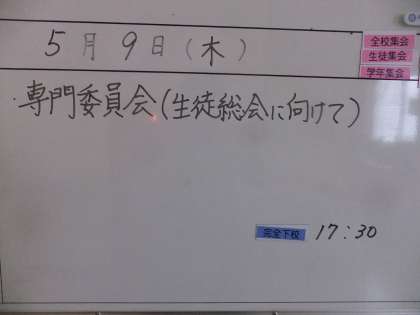 5月9日(木)
全校集会
生徒集会
学年集会
専門委員会(生徒総会に向けて)
完全下校 17:30